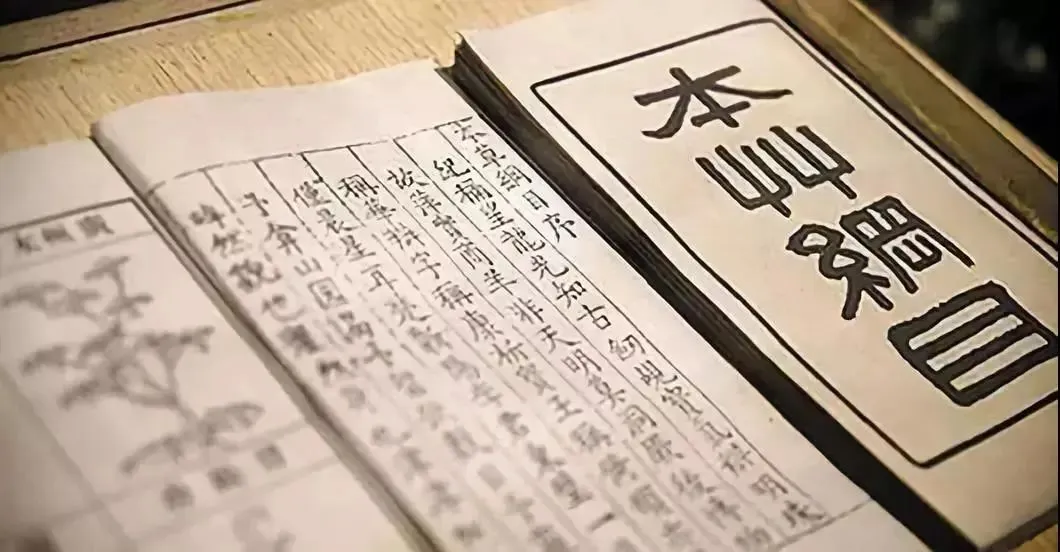 本草綱目
本草綱目序
紀稱望龍光知古劒覘寶氣辨明珠
故萍實商羊非天明莫洞厥後博物
稱華辨字稱康析寶玉稱倚頓亦
僅晨星耳楚蘄陽李君東璧一
予弇山園謁予留飲數
睟然貌也癯然